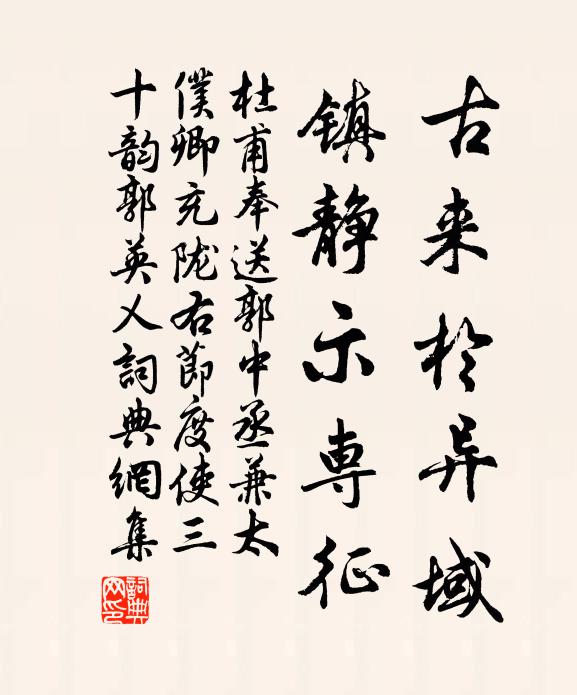 古来於异域
镇静示専征
杜甫奉送郭中丞兼太
僕卿充陇右節度使三
十韵郭英乂詞典網集
詞典网印